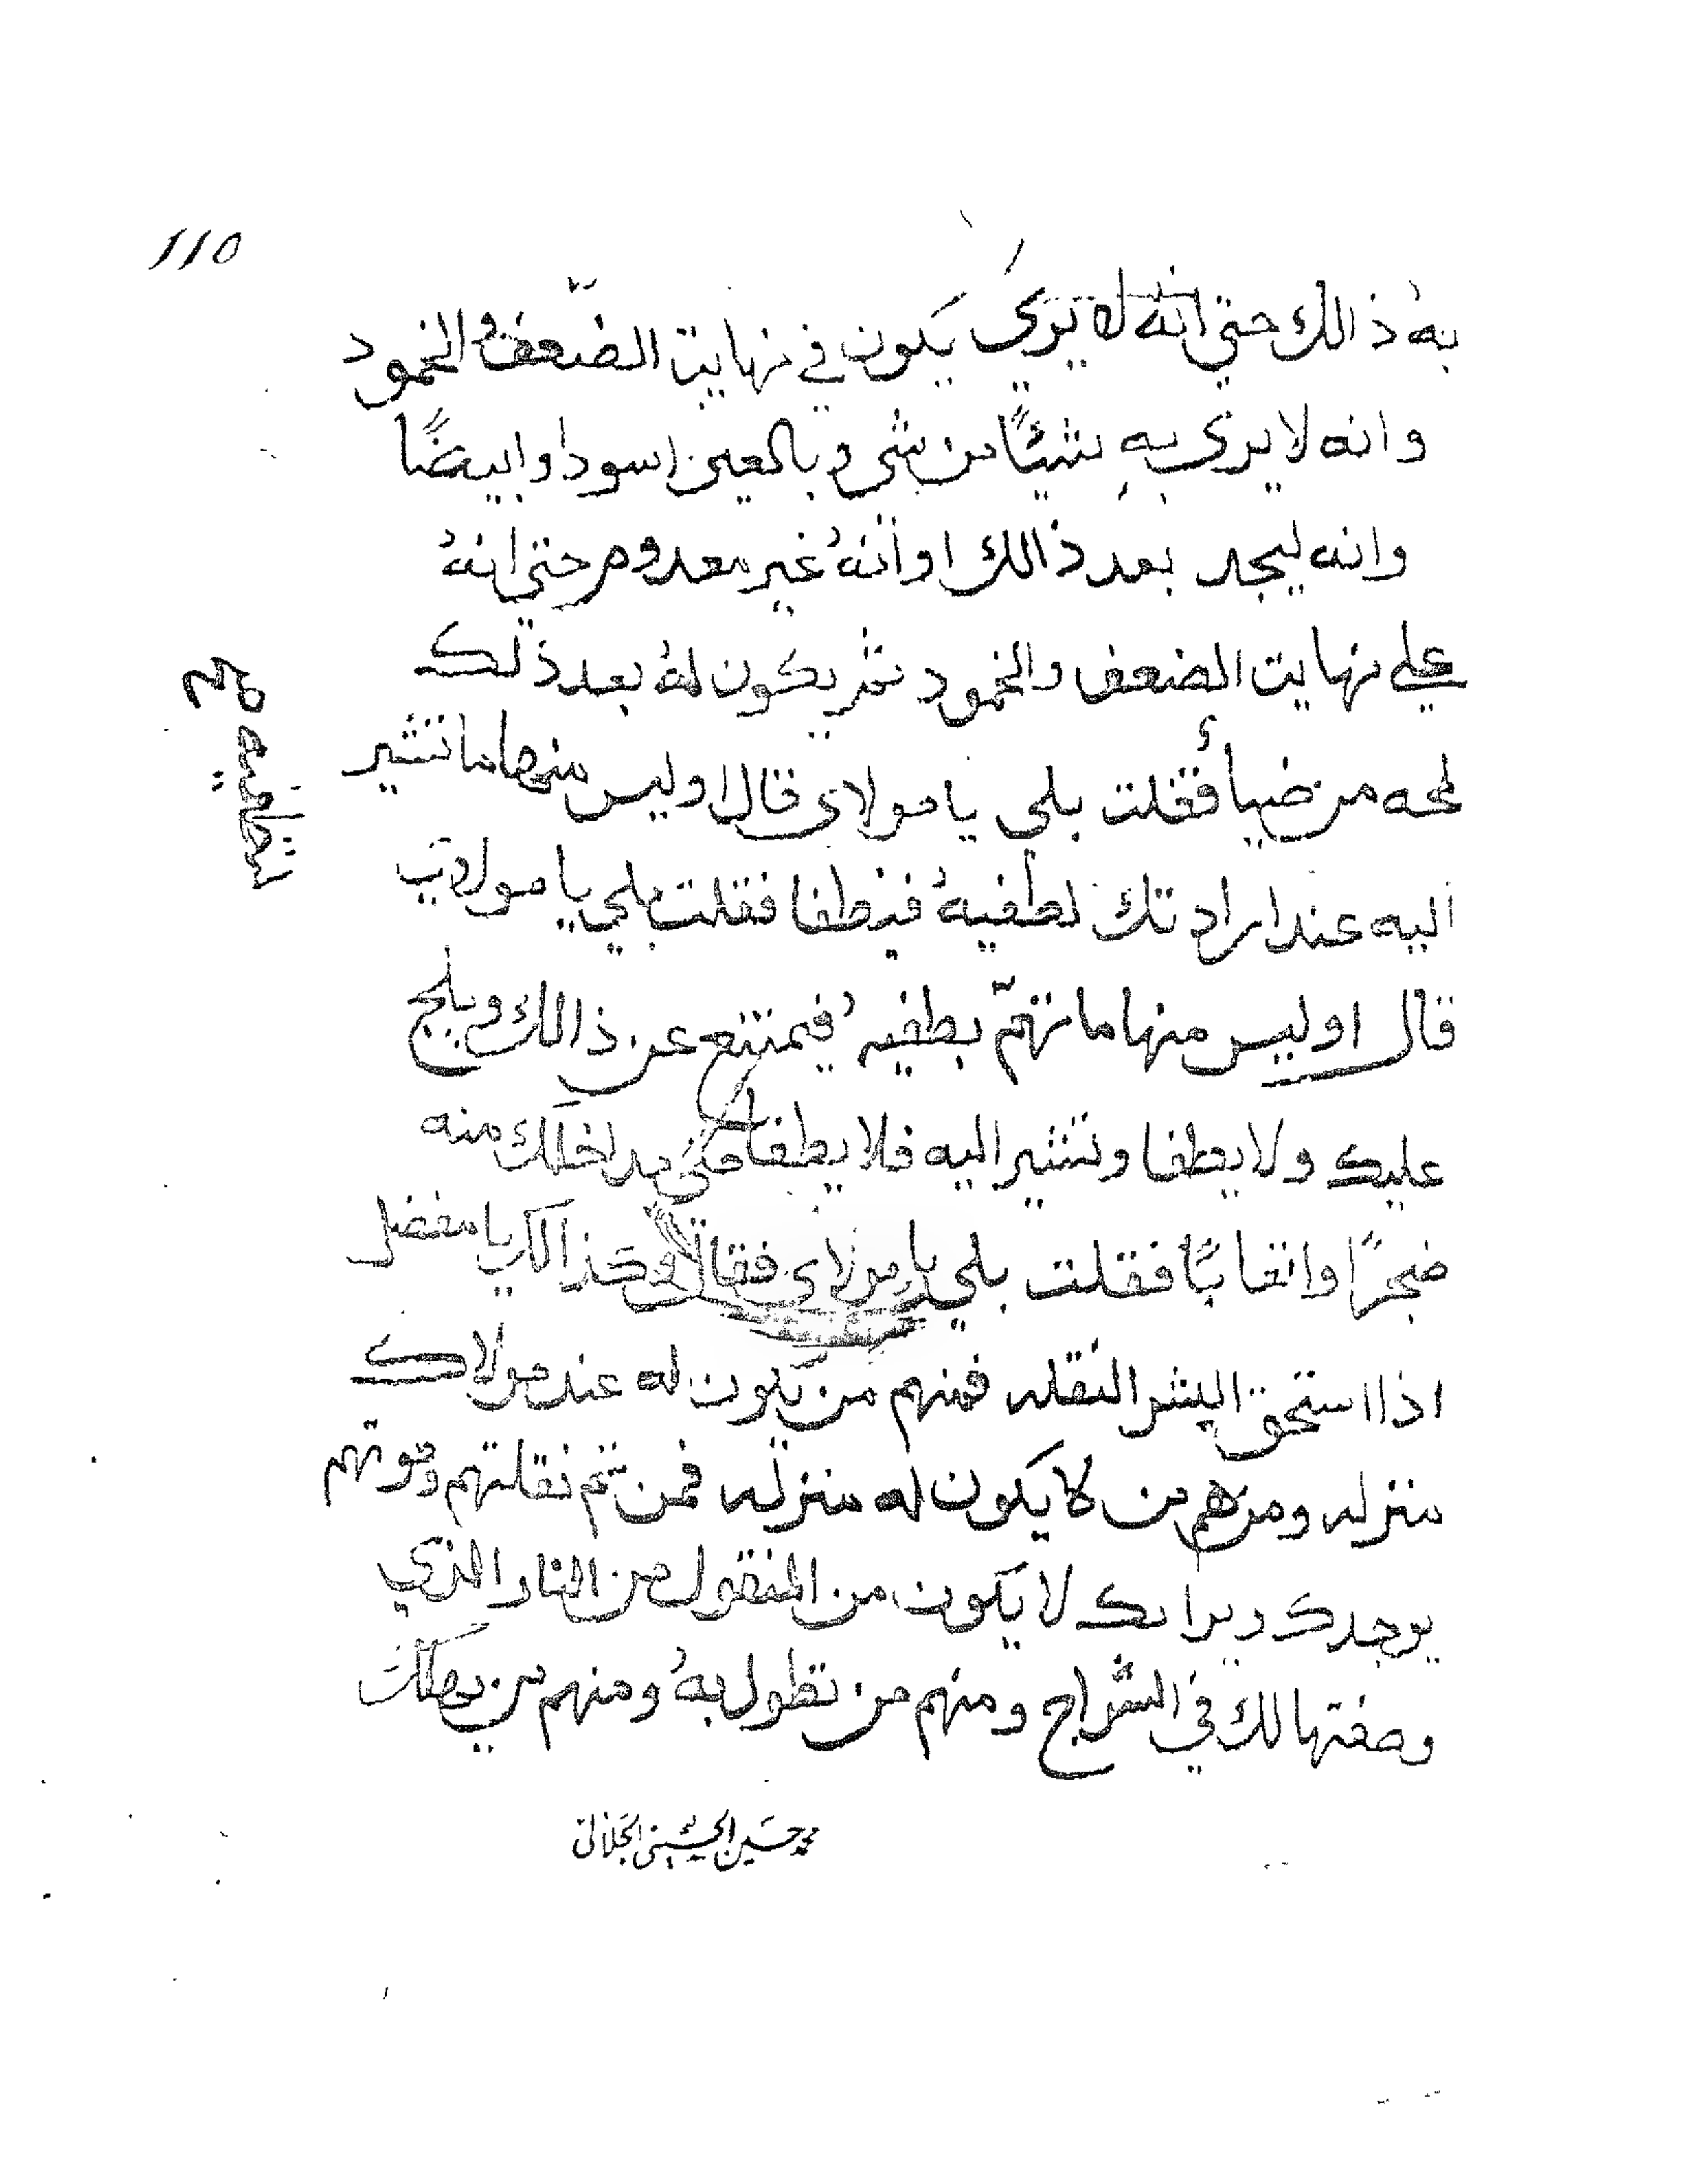 ١١٥
به ذالك حتي انه لا يري يكون في نهايت الضّعف والخمود
وانه لا يرى به شيئًا من شى وبالعين اسودا وابيضًا
وانه ليجد بعد ذالك اوانهُ غير معدوم حتي انهُ
علي نهايت الضعف والخمود ثم يكون لهُ بعد ذلك
لمحه من ضيأ فقلت بلى يا مولاى قال اوليس منها ما تشير
اليه عند ارادتك لطفيهُ فينطفا فقلت بلي يا مولاي
قال اوليس منها ما تهمّ بطفيهُ فيمتنع عن ذالك ويلج
عليك ولا يطفا وتشير اليه فلا يطفا حتى يداخلك منه
ضجرًا واتعابًا فقلت بلي يا مولاى فقال وكذالك يا مفضل
اذا استحق البشر النقله فمنهم من يكون له عند مولاك
منزله ومنهم من لا يكون له منزله فمن ثم نقلتهم وقوتهم
يوجدك ويرا بك لا يكون من المنقول من النار الذي
وصفتها لك في السراج ومنهم من تطول بهُ ومنهم من
محمد حسين الحسيني الجلالي